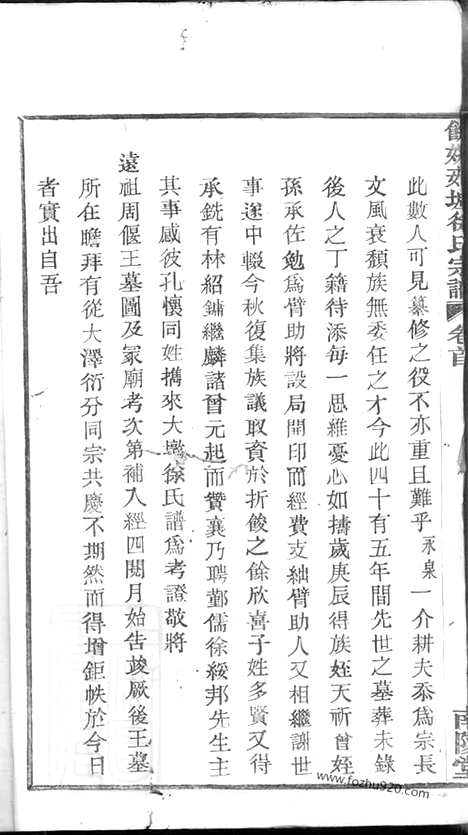 餘姚
徐氏宗譜
卷首
此數人可見纂修之役不亦重且難乎永泉一介耕夫忝爲宗長
文風衰頽族無委任之才今此四十有五年間先世之墓葬未錄
後人之丁籍待添每一思維憂心如擣歲庚辰得族姪天祈曾姪
孫承佐勉爲臂助將設局開印而經費支絀臂助人又相繼謝世
事遂中輟今秋復集族議取資於折餕之餘欣喜子姓多賢又得
承銑有林紹鏞繼麟諸曾元起而贊襄乃聘鄞儒徐綏邦先生主
其事感彼孔懷同姓攜來大墩徐氏譜爲考證敬將
遠祖周偃王墓圖及冡廟考次第補入經四閱月始告竣厥後王墓
所在瞻拜有從大澤衍分同宗共慶不期然而得增鉅帙於今日
者實出自吾
南陵堂
www.fozhu920.com